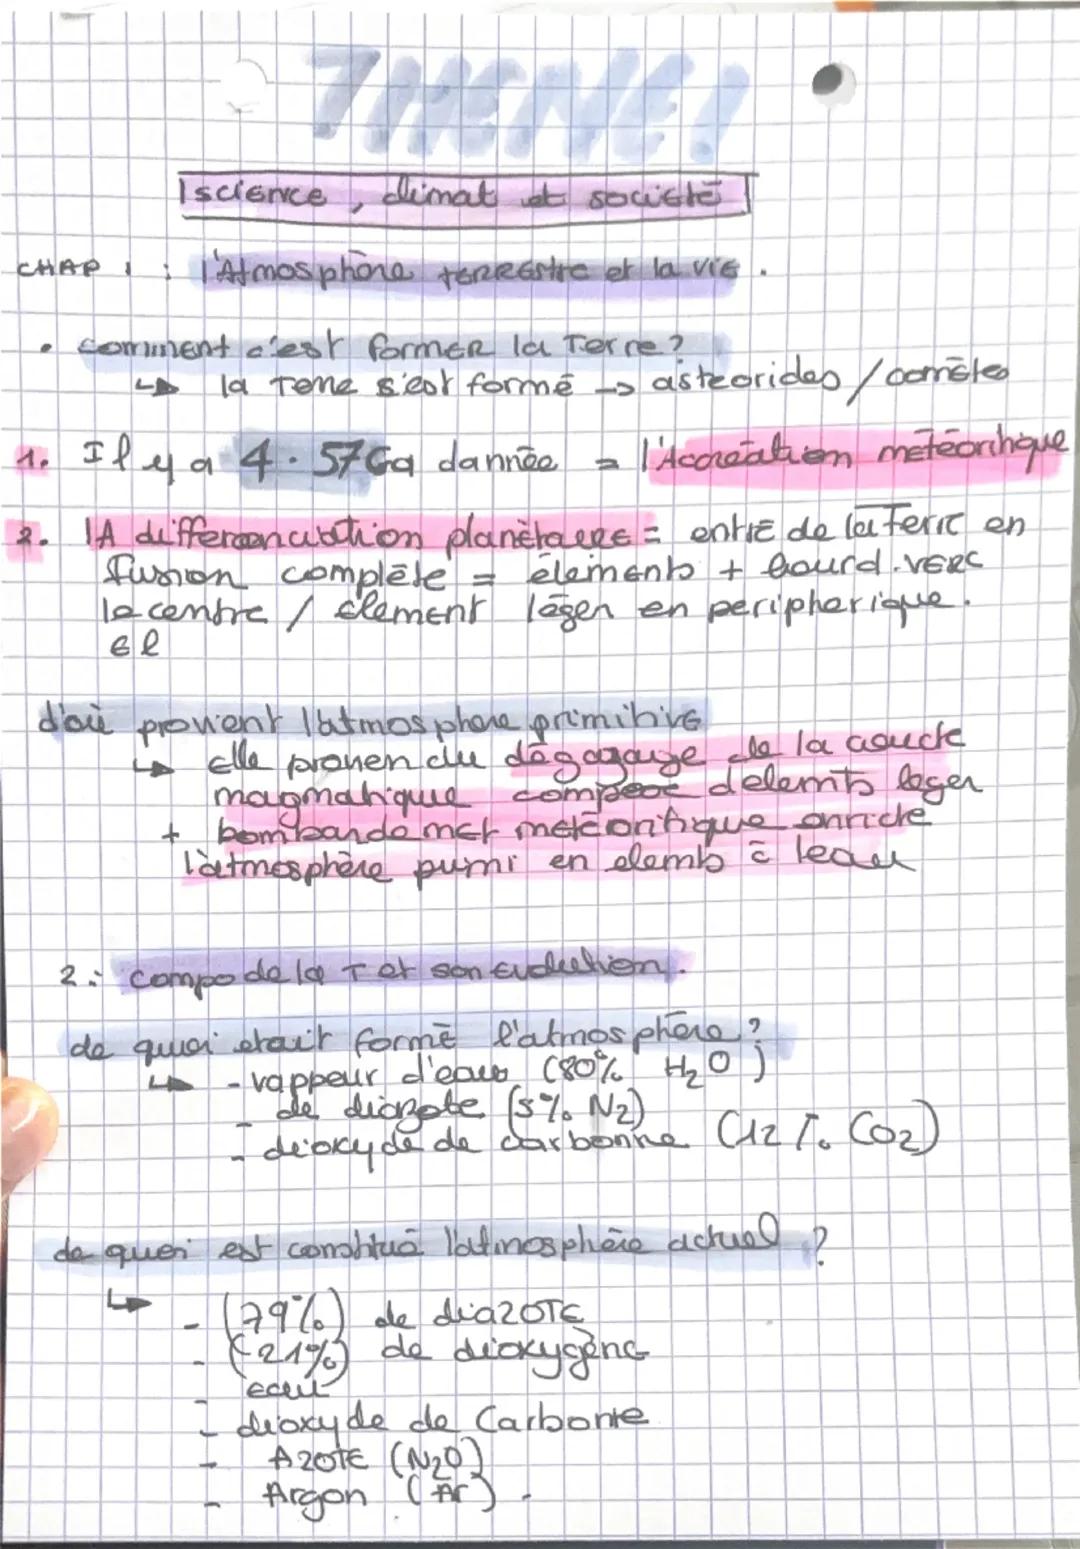 THEME 1
science, climat et société
CHAP 1 : l'Atmosphère terrestre et la vie.
• comment c'est former la Terre?
↳ la Terre s'est formé → asteorides / comètes
1. Il y a 4.57Ga dannée = l'Accréation météoritique
2. lA differenciation planétaire = entre de la Terre en
fusion complète = élements + lourd. vers
le centre / élement léger en peripherique.
el
d'où provient l'atmosphere primitive
↳ elle provien du dégazage de la couche
magmatique compose d'elemts leger
+ bombardemet météoritique enrichie
l'atmosphère primi en elemts à leau
2.: compo de la T et son évolution.
de quoi etait formé l'atmosphère?
↳ - vappeur d'eau (80% H2O)
- de diazote (5% N2)
- deioxyde de carbonne (12% CO2)
de quoi est constitué l'atmosphère actuel ?
↳ - (79%) de diazote
- (21%) de dioxygène
- eau
- dioxyde de Carbone
- Azote (N2O)
- Argon (Ar).